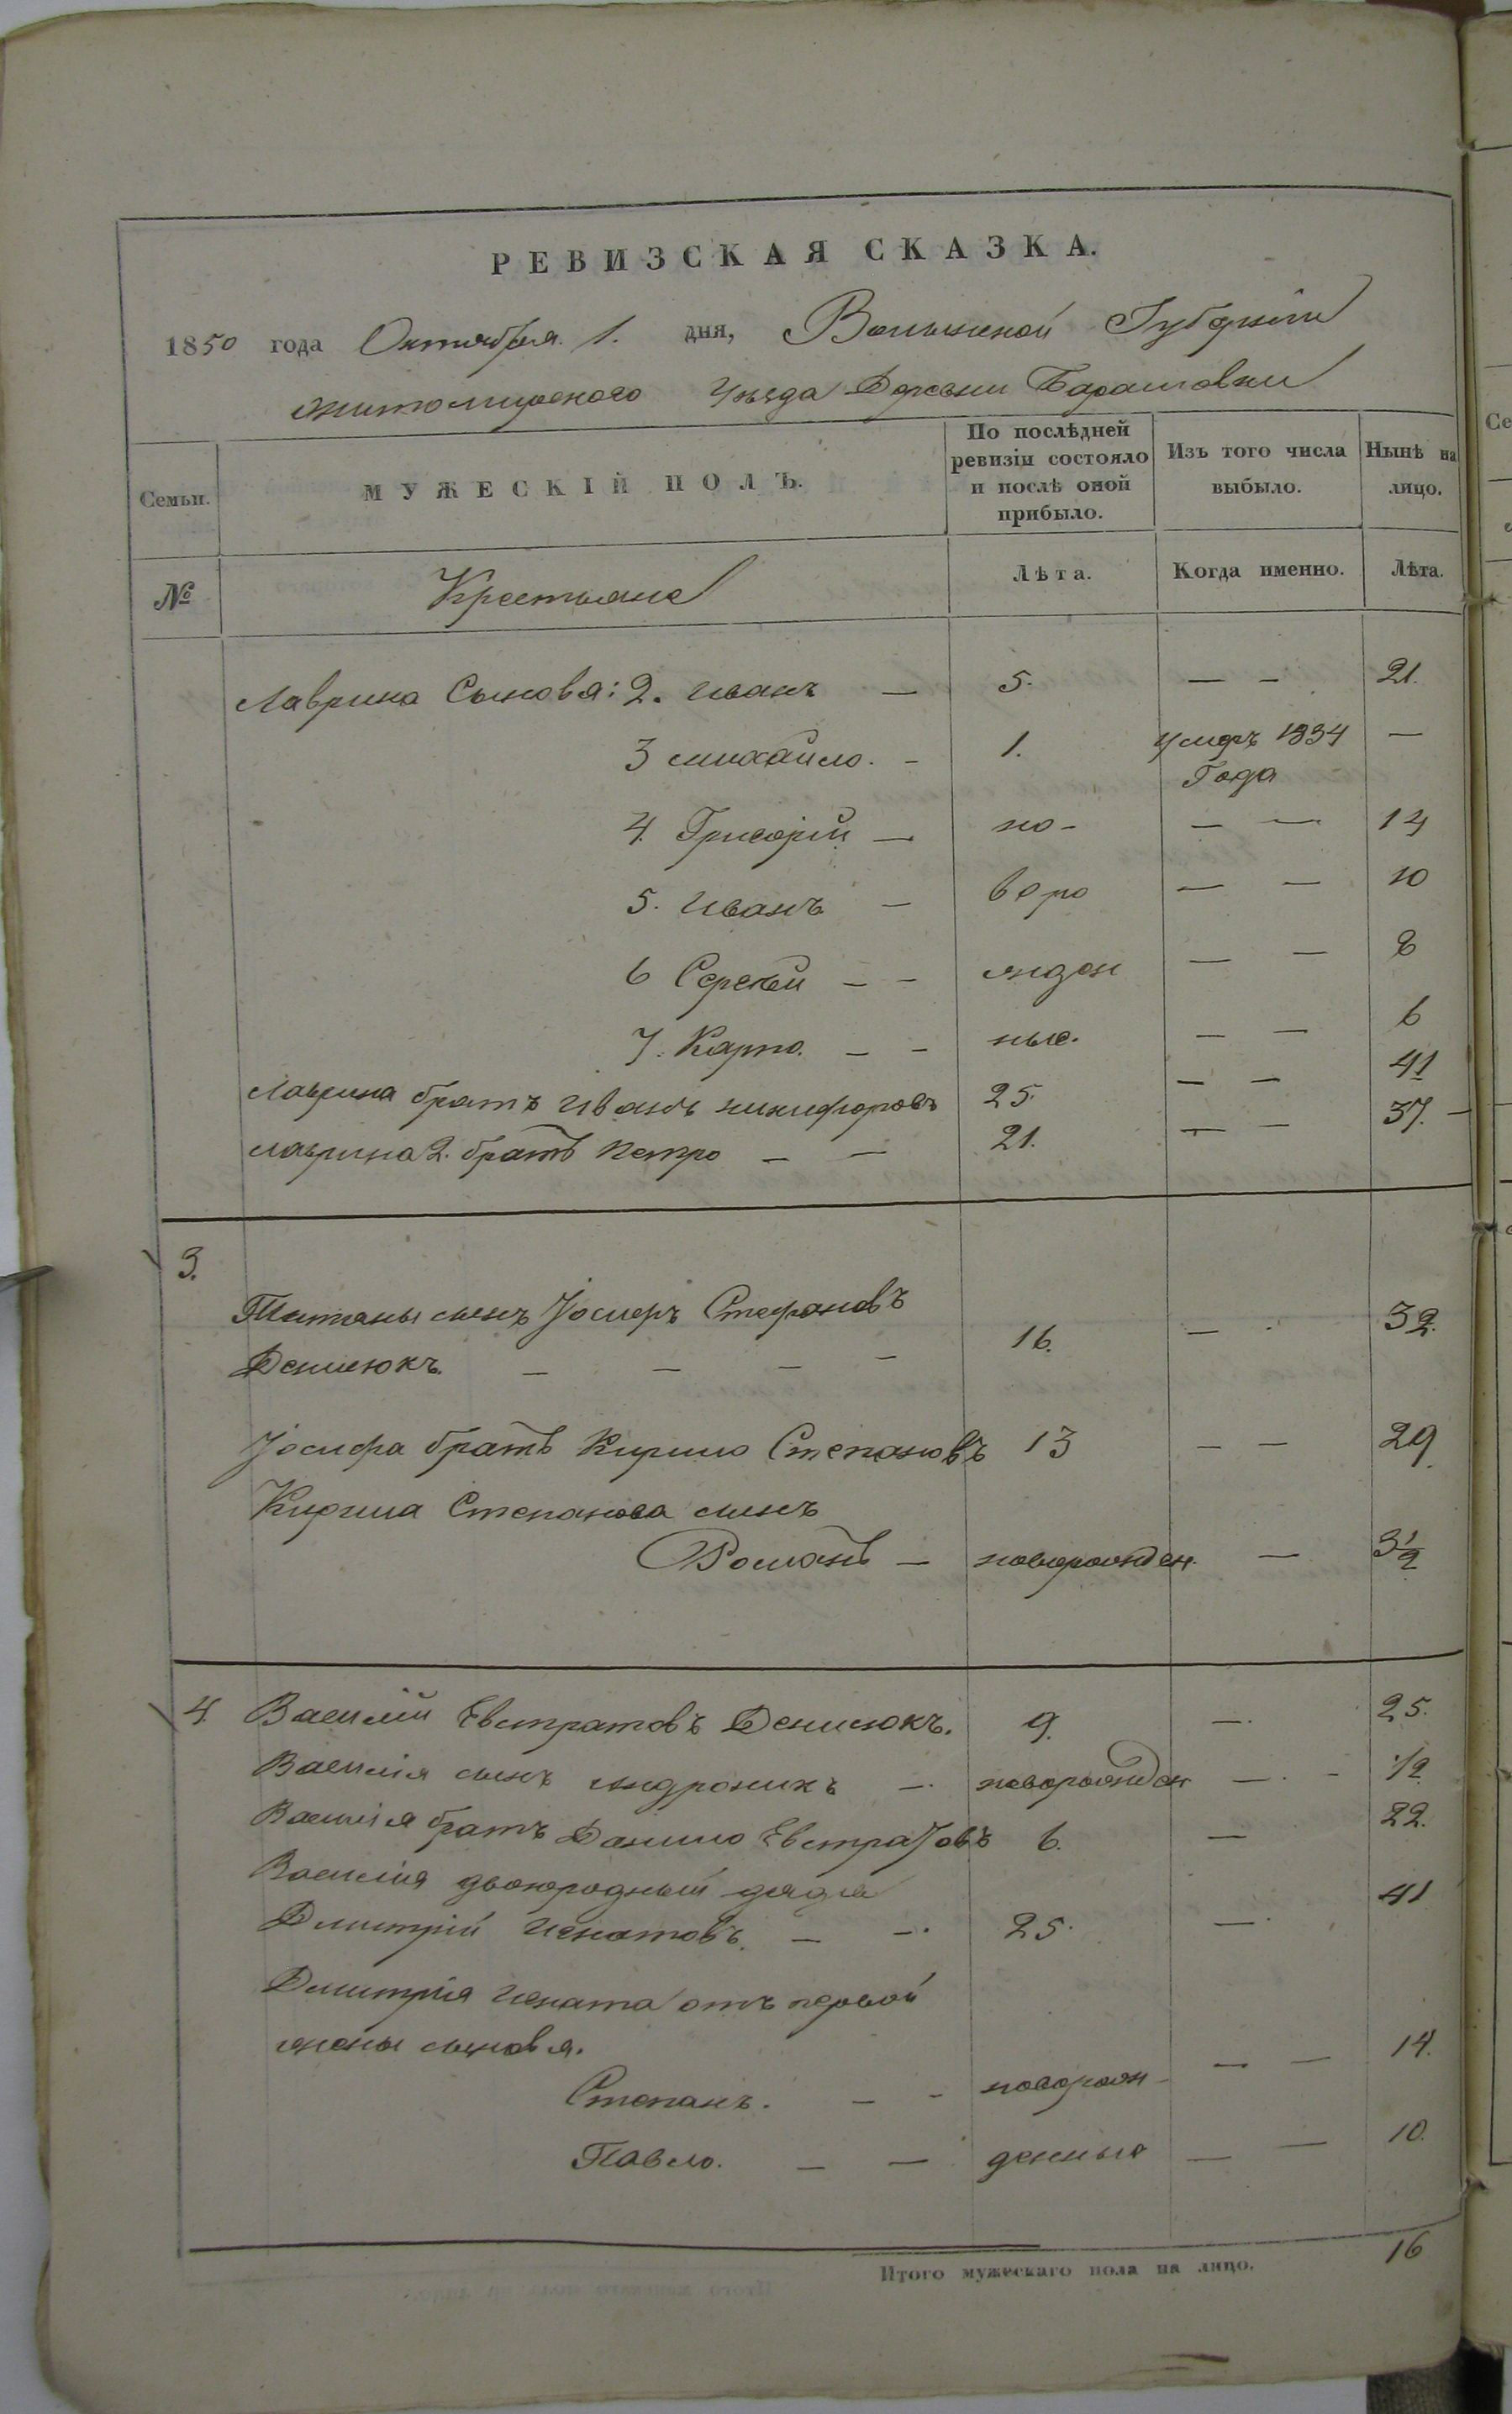 РЕВИЗСКАЯ СКАЗКА.
1850 года Октября 1. дня, Волынской Губерніи
Житомирского Уѣзда Деревни Барашовки
Семьи. МУЖЕСКІЙ ПОЛЪ. По послѣдней ревизіи состояло и послѣ оной прибыло. Изъ того числа выбыло. Нынѣ на лицо.
№ Крестьяне Лѣта. Когда именно. Лѣта.
Лаврина Сыновя: 2. Иванъ — 5. — — 21.
3 михайло. - 1. умеръ 1834 Года —
4. Григорій — но- — — 14
5. Иванъ — воро — — 10
6 Сергѣй — — жден — — 8
7. Карпо. — — ные. — — 6
Лаврина братъ Иванъ никифоровъ 25. — — 41
лаврина 2. братъ Петро — — 21. — — 37. —
3.
сынъ Іосифъ Стефановъ
Денисюкъ. — — — — 16. — . 32.
Іосифа братъ Кирило Степановъ 13 — — 29.
Кирила Степанова сынъ
Романъ — новорожден. — 3½
4. Василій Евстратовъ Денисюкъ. 9. —. 25.
Василія сынъ андроникъ —. новорожден —. - ½
Василія братъ Данило Евстратовъ 6. — 22.
Василія двоюродный дядя
Дмитрій Игнатовъ. — —. 25. —. 41
Дмитрія Игната отъ первой
жены сыновя.
Степанъ. — - новорож- — — 14.
Павло. — — денные — — 10.
Итого мужескаго пола на лицо. 16